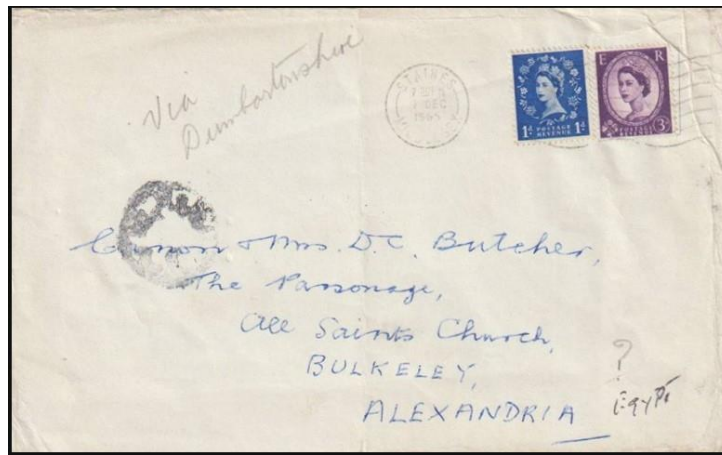 Via
Dumbartonshire
STAINES
1 DEC
1965
1D POSTAGE REVENUE 1D
E R
POSTAGE REVENUE 3D
Canon & Mrs. D.C. Butcher,
The Parsonage,
All Saints Church,
BULKELEY,
ALEXANDRIA
?
Egypt